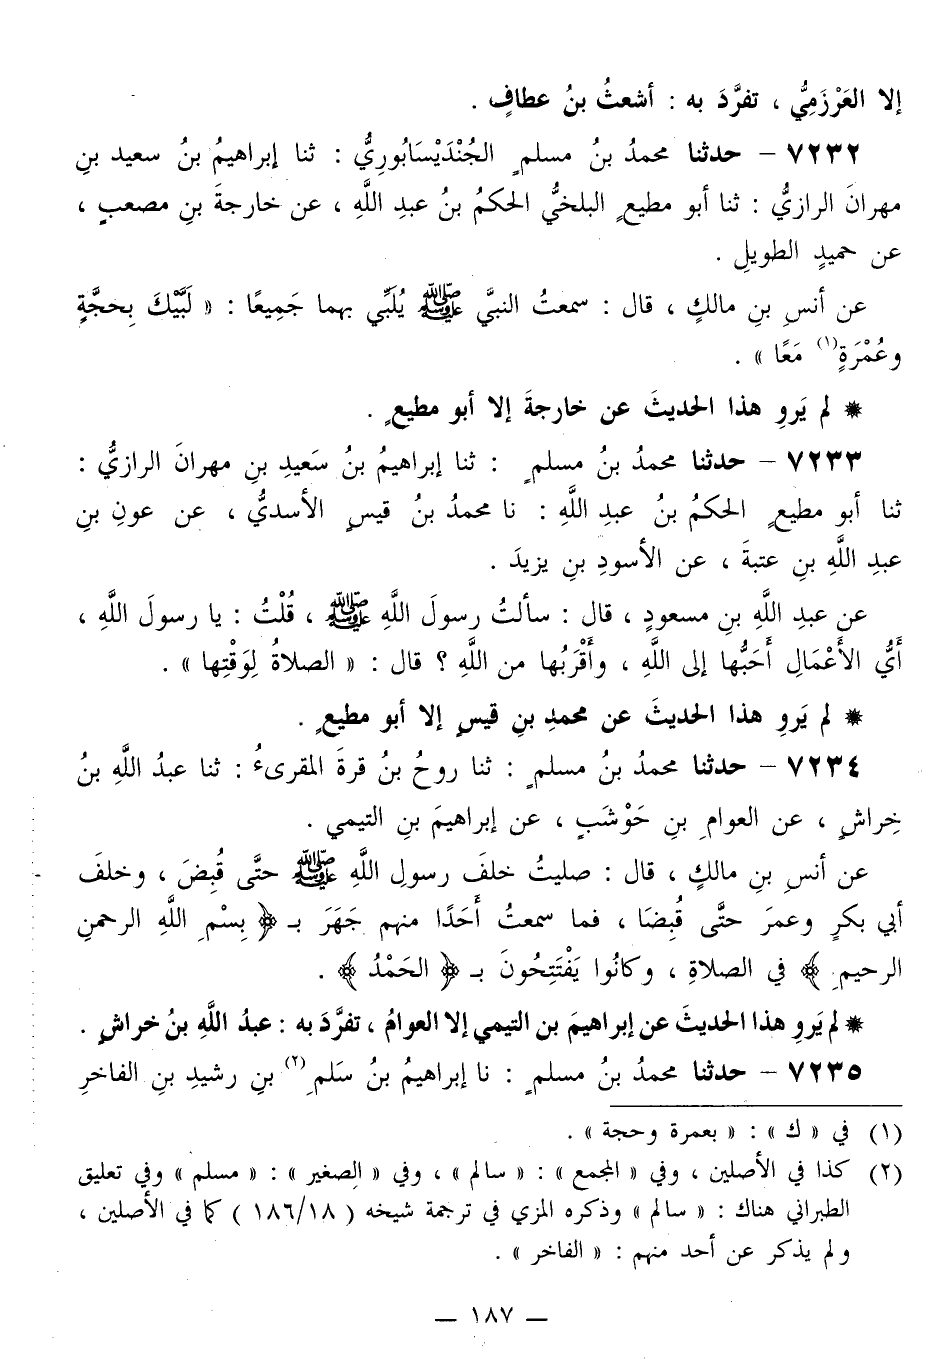 إلا العَرْزَمِيُّ ، تفرَّدَ به : أشعثُ بنُ عطافٍ .
٧٢٣٢ – حدثنا محمدُ بنُ مسلمٍ الجُنْدَيْسَابُوريُّ : ثنا إبراهيمُ بنُ سعيد بنِ
مهرانَ الرازيُّ : ثنا أبو مطيعٍ البلخيُّ الحكمُ بنُ عبدِ اللَّهِ ، عن خارجةَ بنِ مصعبٍ ،
عن حميدٍ الطويلِ .
عن أنسِ بنِ مالكٍ ، قال : سمعتُ النبيَّ ﷺ يُلَبِّي بهما جَمِيعًا : « لَبَّيْكَ بِحجَّةٍ
وعُمْرَةٍ(١) مَعًا » .
* لم يَروِ هذا الحديثَ عن خارجةَ إلا أبو مطيعٍ .
٧٢٣٣ – حدثنا محمدُ بنُ مسلمٍ : ثنا إبراهيمُ بنُ سَعيدِ بنِ مهرانَ الرازيُّ :
ثنا أبو مطيعٍ الحكمُ بنُ عبدِ اللَّهِ : نا محمدُ بنُ قيسٍ الأسديُّ ، عن عونِ بنِ
عبدِ اللَّهِ بنِ عتبةَ ، عن الأسودِ بنِ يزيدَ .
عن عبدِ اللَّهِ بنِ مسعودٍ ، قال : سألتُ رسولَ اللَّهِ ﷺ ، قُلْتُ : يا رسولَ اللَّهِ ،
أَيُّ الأَعْمَالِ أَحَبُّها إلى اللَّهِ ، وأَقْرَبُها من اللَّهِ ؟ قال : « الصلاةُ لِوَقْتِها » .
* لم يَروِ هذا الحديثَ عن محمدِ بنِ قيسٍ إلا أبو مطيعٍ .
٧٢٣٤ – حدثنا محمدُ بنُ مسلمٍ : ثنا روحُ بنُ قرةَ المقرىءُ : ثنا عبدُ اللَّهِ بنُ
خِراشٍ ، عن العوامِ بنِ حَوْشَبٍ ، عن إبراهيمَ بنِ التيمي .
عن أنسِ بنِ مالكٍ ، قال : صليتُ خلفَ رسولِ اللَّهِ ﷺ حتَّى قُبِضَ ، وخلفَ
أبي بكرٍ وعمرَ حتَّى قُبِضَا ، فما سمعتُ أَحَدًا منهم جَهَرَ بـ ﴿ بِسْمِ اللَّهِ الرحمنِ
الرحيمِ ﴾ في الصلاةِ ، وكانُوا يَفْتَتِحُونَ بـ ﴿ الحَمْدُ ﴾ .
* لم يَروِ هذا الحديثَ عن إبراهيمَ بن التيمي إلا العوامُ ، تفرَّدَ به : عبدُ اللَّهِ بنُ خراشٍ .
٧٢٣٥ – حدثنا محمدُ بنُ مسلمٍ : نا إبراهيمُ بنُ سَلمِ(٢) بنِ رشيدِ بنِ الفاخرِ
(١) في « ك » : « بعمرة وحجة » .
(٢) كذا في الأصلين ، وفي « المجمع » : « سالم » ، وفي « الصغير » : « مسلم » وفي تعليق
الطبراني هناك : « سالم » وذكره المزي في ترجمة شيخه ( ١٨٦/١٨ ) كما في الأصلين ،
ولم يذكر عن أحد منهم : « الفاخر » .
— ١٨٧ —